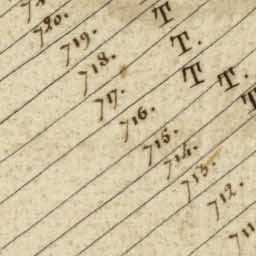 720.
719.
718. T
717. T.
716. T
715. T.
714. T
713.
712.
711